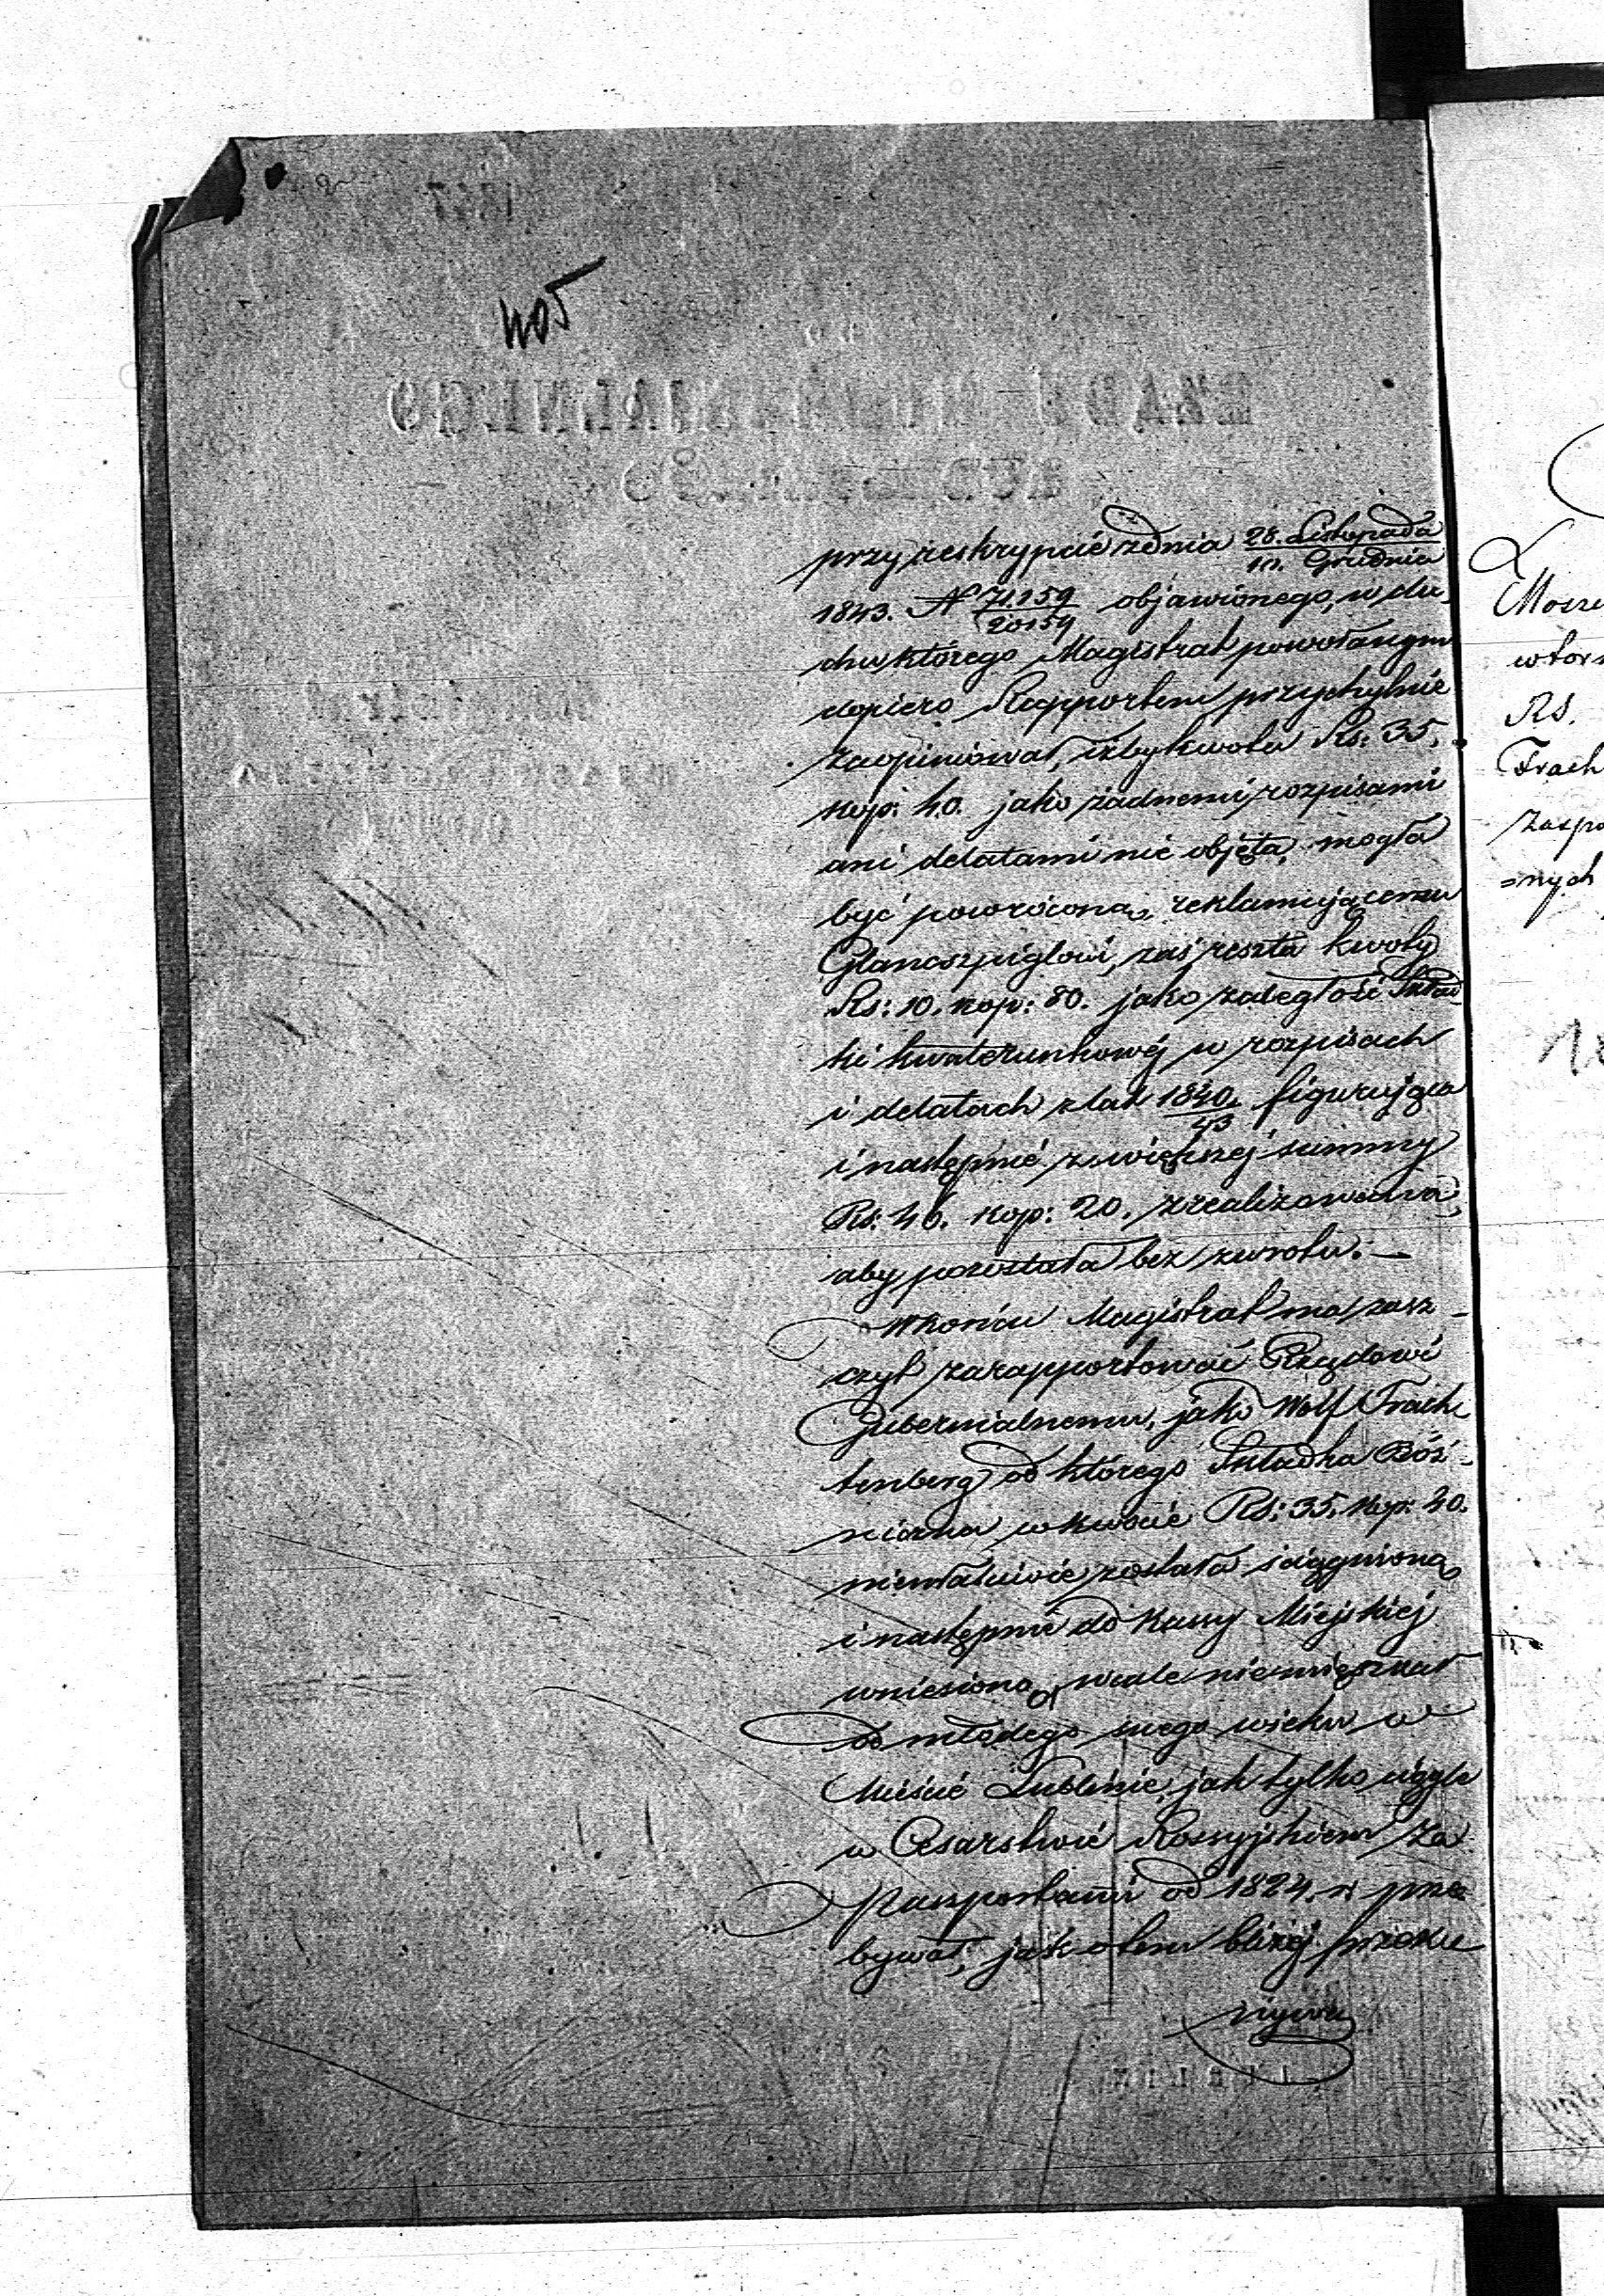 405
przy reskrypcie z dnia 28. Listopada / 10. Grudnia
1843. N 71.159 / 20154 objawionego, w du-
chu którego Magistrat powołanym
dopiero Rapportem przychylnie
zaopiniował, iżby kwota Rs: 35.
kop: 40. jako żadnemi rozpisami
ani delatami nie objęta, mogła
być powrócona reklamującemu
Glancszpiglowi, zaś reszta kwoty
Rs: 10. kop: 80. jako zaległość Skład
ki kwaterunkowéj w rozpisach
i delatach z lat 1840/43 figurująca
i następnie z większej summy
Rs: 46. kop: 20. zrealizowana,
aby pozostała bez zwrotu.—
W końcu Magistrat ma zasz-
czyt zarapportować Rządowi
Gubernialnemu, jako Wolf Trach
tenberg od którego Składka Bóż-
niczna w kwocie Rs: 35. kop: 40.
niewłaściwie została ściągniona
i następnie do Kassy Miejskiej
wniesiona, wcale niemięszkał
od młodego swego wieku w
Mieście Lublinie, jak tylko ciągle
w Cesarstwie Rossyjskiem za
Paszportami od 1824. r. prze
bywał, jak o tem bliżej przeko
nywa
Mosze
wtor
RS.
Trach
Zaspo
=nych